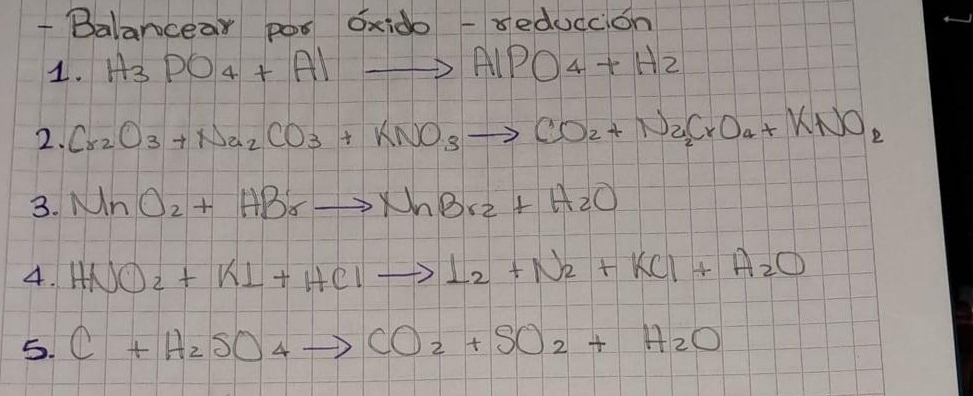 - Balancear por óxido - reducción
1. H3 PO4 + Al → AlPO4 + H2
2. Cr2O3 + Na2 CO3 + KNO3 → CO2 + Na2CrO4 + KNO2
3. MnO2 + HBr → MnBr2 + H2O
4. HNO2 + KI + HCl → I2 + N2 + KCl + H2O
5. C + H2SO4 → CO2 + SO2 + H2O